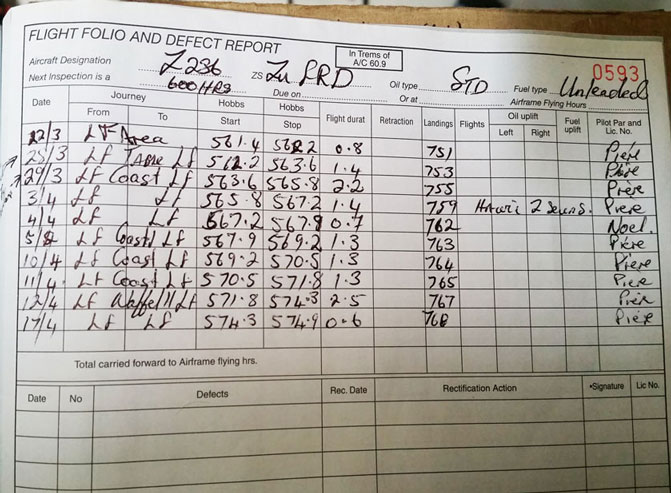 FLIGHT FOLIO AND DEFECT REPORT
In Trems of A/C 60.9
0593
Aircraft Designation Z236 ZS Zu LRD Oil type STD Fuel type Unleaded
Next Inspection is a 600HRS Due on Or at Airframe Flying Hours
Date Journey Hobbs Hobbs Flight durat Retraction Landings Flights Oil uplift Fuel uplift Pilot Par and Lic. No.
From To Start Stop Left Right
22/3 LF Area 561.4 562.2 0.8 751 Piere
25/3 LF LF 562.2 563.6 1.4 753 Piere
29/3 LF Coast LF 563.6 565.8 2.2 755 Piere
3/4 LF LF 565.8 567.2 1.4 759 2 Piere
4/4 LF LF 567.2 567.9 0.7 762 Noel.
LF Coast LF 567.9 569.2 1.3 763 Piere
10/4 LF Coast LF 569.2 570.5 1.3 764 Piere
11/4 LF Coast LF 570.5 571.8 1.3 765 Piere
12/4 LF LF 571.8 574.3 2.5 767 Piere
17/4 LF LF 574.3 574.9 0.6 768 Piere
Total carried forward to Airframe flying hrs.
Date No Defects Rec. Date Rectification Action •Signature Lic No.